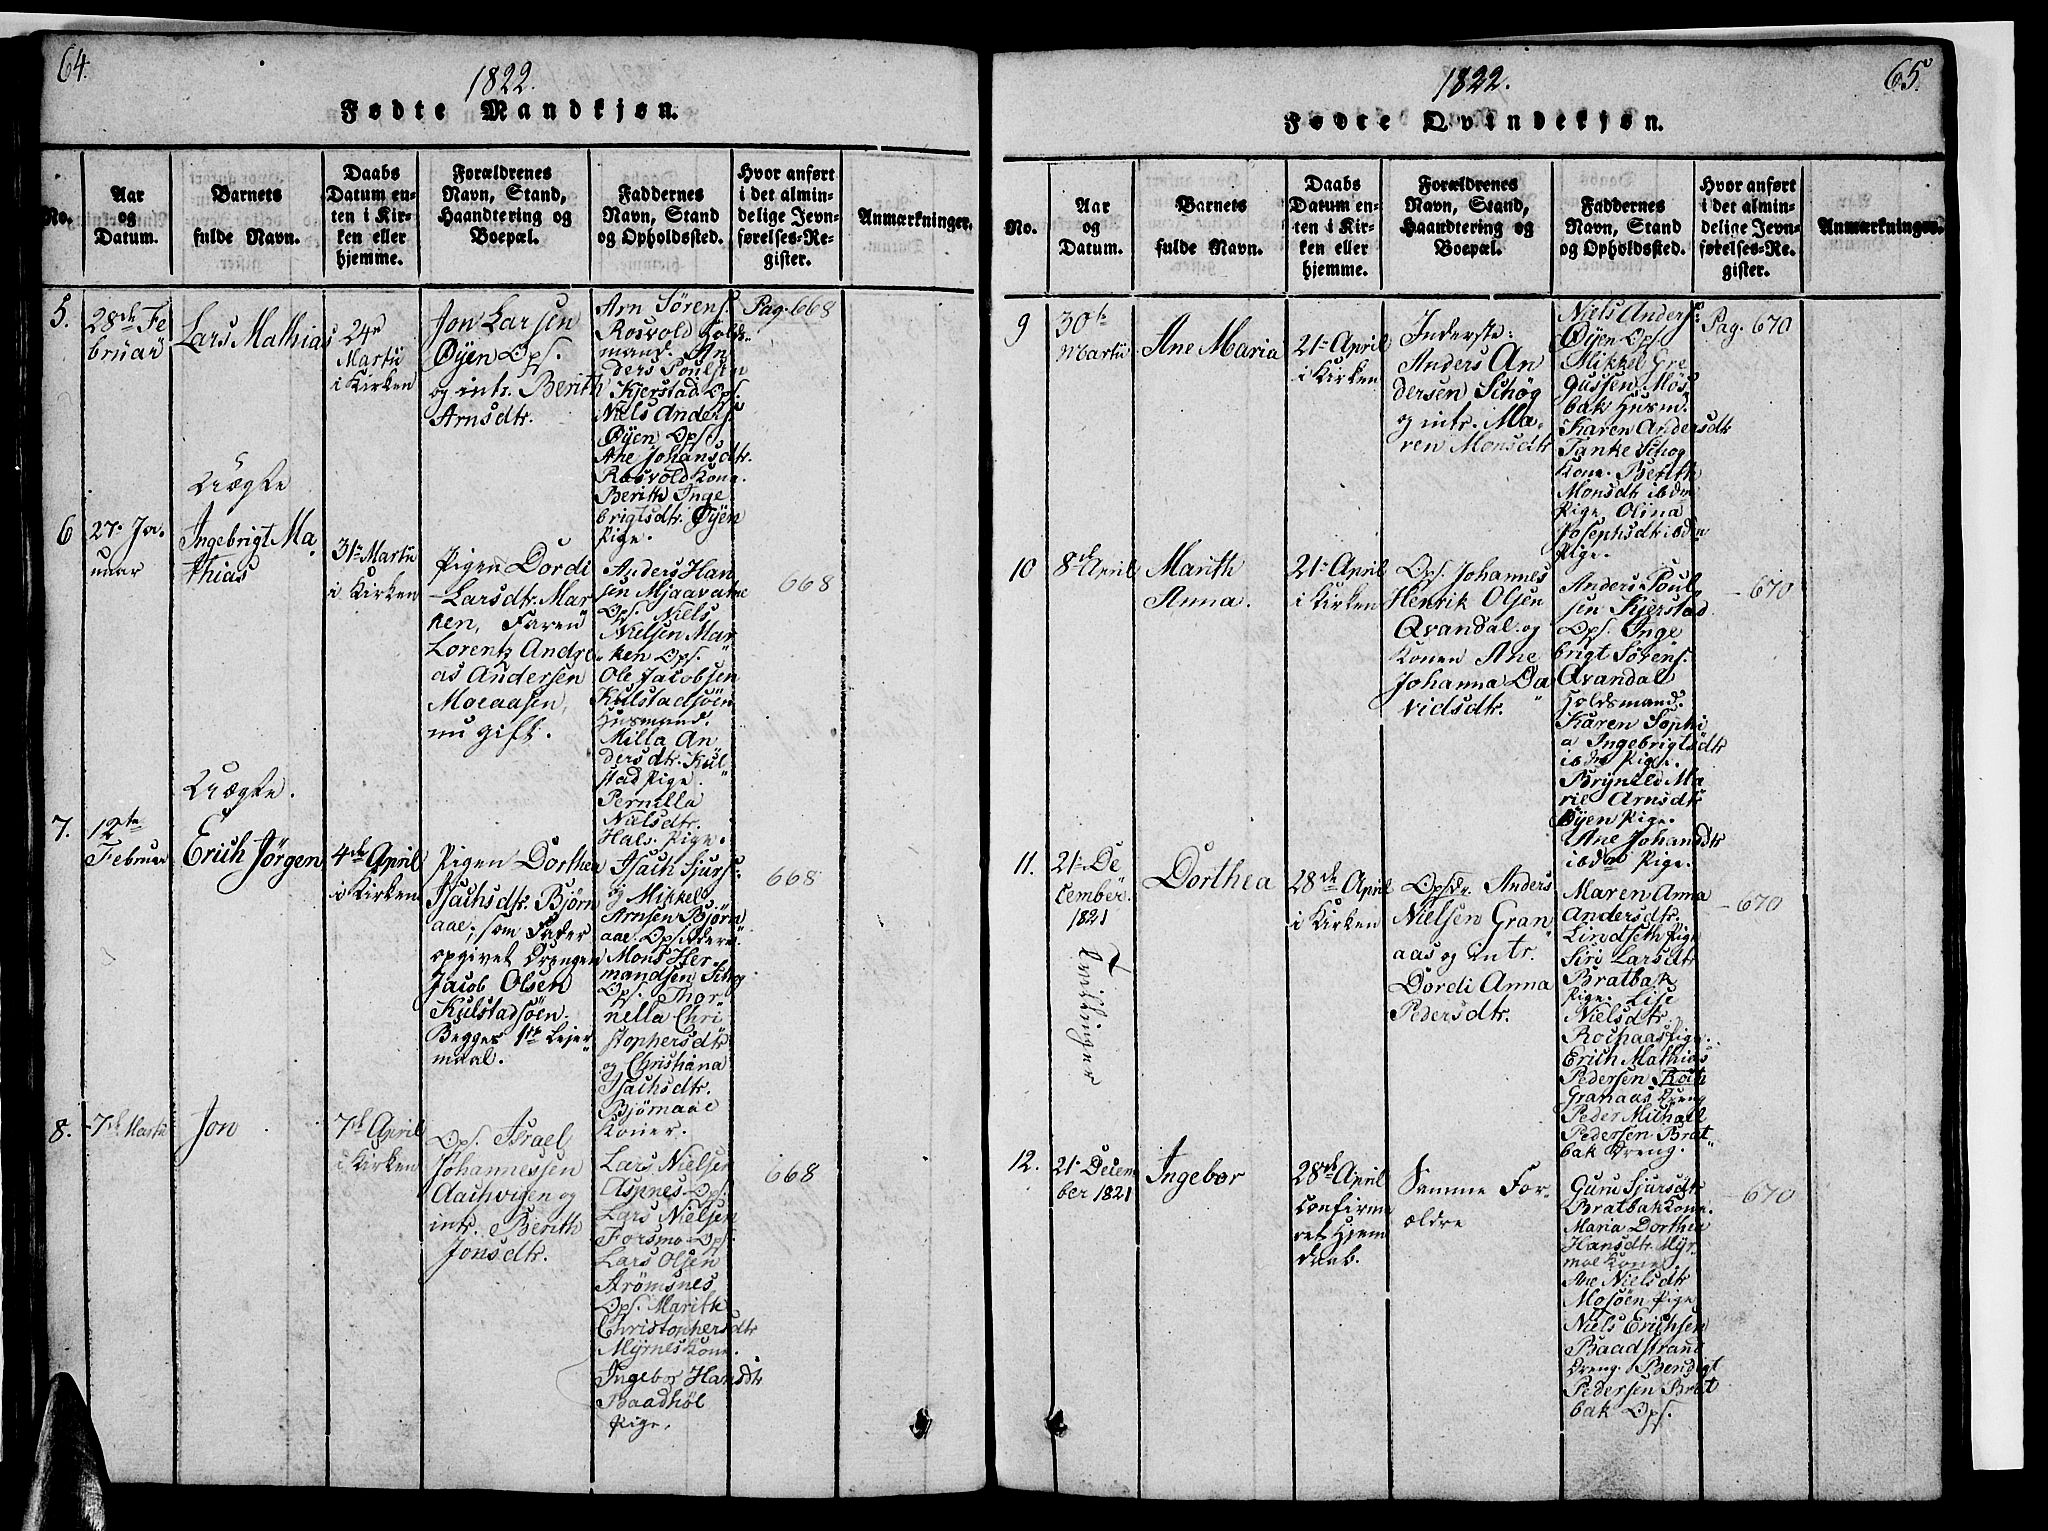 64.
1822.
Fødte Mandkjøn.
No.
Aar
og
Datum.
Barnets
fulde Navn.
Daabs
Datum en-
ten i Kir-
ken eller
hjemme.
Forældrenes
Navn, Stand,
Haandtering og
Boepæl.
Faddernes
Navn, Stand
og Opholdssted.
Hvor anført
i det almin-
delige Jevn-
førelses-Re-
gister.
Anmærkninger.
5.
28de Fe
bruar
Lars Mathias
24de
Martii
i Kirken
Jon Larsen
Øyen Ops.
og intr. Berith
Arnsdtr.
Arn Sörens.
Rosvold Holds
mand. An
ders Poulsen
Kjerstad Ops.
Niels Anders.
Øyen Ops.
Ane Johansdtr.
Rosvold Kone.
Berith Inge
brigtsdtr. Øyen
Pige.
Pag. 668
Uægte
6
27. Ja-
nuar
Ingebrigt Ma-
thias
31te Martii
i Kirken
Pigen Dordi
Larsdtr. Mar
ken, Faren
Lorentz Andre
as Andersen
Moeaasen,
nu gift.
Anders Han
sen Mjaavatne
Ops. Niels
Nielsen Mar
ken Ops.
Ole Jacobsen
Kulstadsöen
Husmand.
Milla An
dersdtr. Kul
stad Pige.
Pernilla
Nielsdtr.
Hals. Pige.
668
Uægte.
7.
12te
Februar
Erich Jörgen
4de April
i Kirken
Pigen Dorthea
Isachsdtr. Bjørn
aae, som Fader
opgivet Drengen
Jacob Olsen
Kulstadsöen.
Begges 1te Lejer
maal.
Isach Sjurs.
og Mikkel
Arnsen Bjørn
aae. Opsiddere
Mons Her
mandsen Schog
Ops. Thor
nella Chri
stophersdtr
og Christiana
Isachsdtr.
Bjørnaae
Koner.
668
8.
7de Martii
Jon
7de April
i Kirken
Ops. Israel
Johannessen
Aachvigen og
intr. Berith
Jonsdtr.
Lars Nielsen
Aspnes Ops.
Lars Nielsen
Forsmo Ops.
Lars Olsen
Strömsnes
Ops. Marith
Christophersdtr
Myrnes Kone.
Ingebor Hansdtr
Baadhöl
Pige.
668
65.
1822.
Fødte Qvindekjøn.
No.
Aar
og
Datum.
Barnets
fulde Navn.
Daabs
Datum en-
ten i Kir-
ken eller
hjemme.
Forældrenes
Navn, Stand,
Haandtering og
Boepæl.
Faddernes
Navn, Stand
og Opholdssted.
Hvor anført
i det almin-
delige Jevn-
førelses-Re-
gister.
Anmærkninger.
9
30te
Martii
Ane Maria
21te April
i Kirken
Inderste:
Anders An
dersen Schog
og intr. Ma-
ren Monsdtr
Niels Anders.
Øyen Ops.
Mikkel Gre
gussen Mös
bak Husm.
Karen Andersdtr
Tanke Schog
Kone. Berith
Monsdtr ibdm
Pige. Olina
Josephsdtr ibdm
Pige.
Pag. 670
10
8de April
Marith
Anna.
21te April
i Kirken
Ops. Johannes
Henrik Olsen
Qvandal og
Konen Ane
Johanna Da
vidsdtr.
Anders Poul
sen Kjerstad
Ops. Inge
brigt Sörens.
Qvandal
Holdsmand.
Karen Sophi
a Ingebrigtsdtr
ibdm Pige.
Brynild Ma
rie Arnsdtr
Øyen Pige.
Ane Johansdtr
ibdm Pige.
670
11.
21te De
cember.
1821
Tvillinger
Dorthea
28de April
i Kirken
Opsdr. Anders
Nielsen Gran
aas og intr.
Dordi Anna
Pedersdtr.
Maren Anna
Andersdtr.
Lindseth Pige
Siri Larsdtr
Bratbak
Pige. Lise
Nielsdtr.
Rochaas Pige.
Erich Mathias
Pedersen Roch
Granaas Dreng
Peder Michael
Pedersen Brat
bak Dreng.
670
12.
21te Decem
ber 1821
Ingebor
28de April
confirme
ret Hjem
daab.
Samme For-
ældre
Guru Sjursdtr
Bratbak Kone.
Maria Dorthea
Hansdtr. Myr
moe Kone.
Ane Nielsdtr
Mosöen Pige
Niels Erichsen
Baadstrand
Dreng. Bendigt
Pedersen Brat
bak Ops.
670